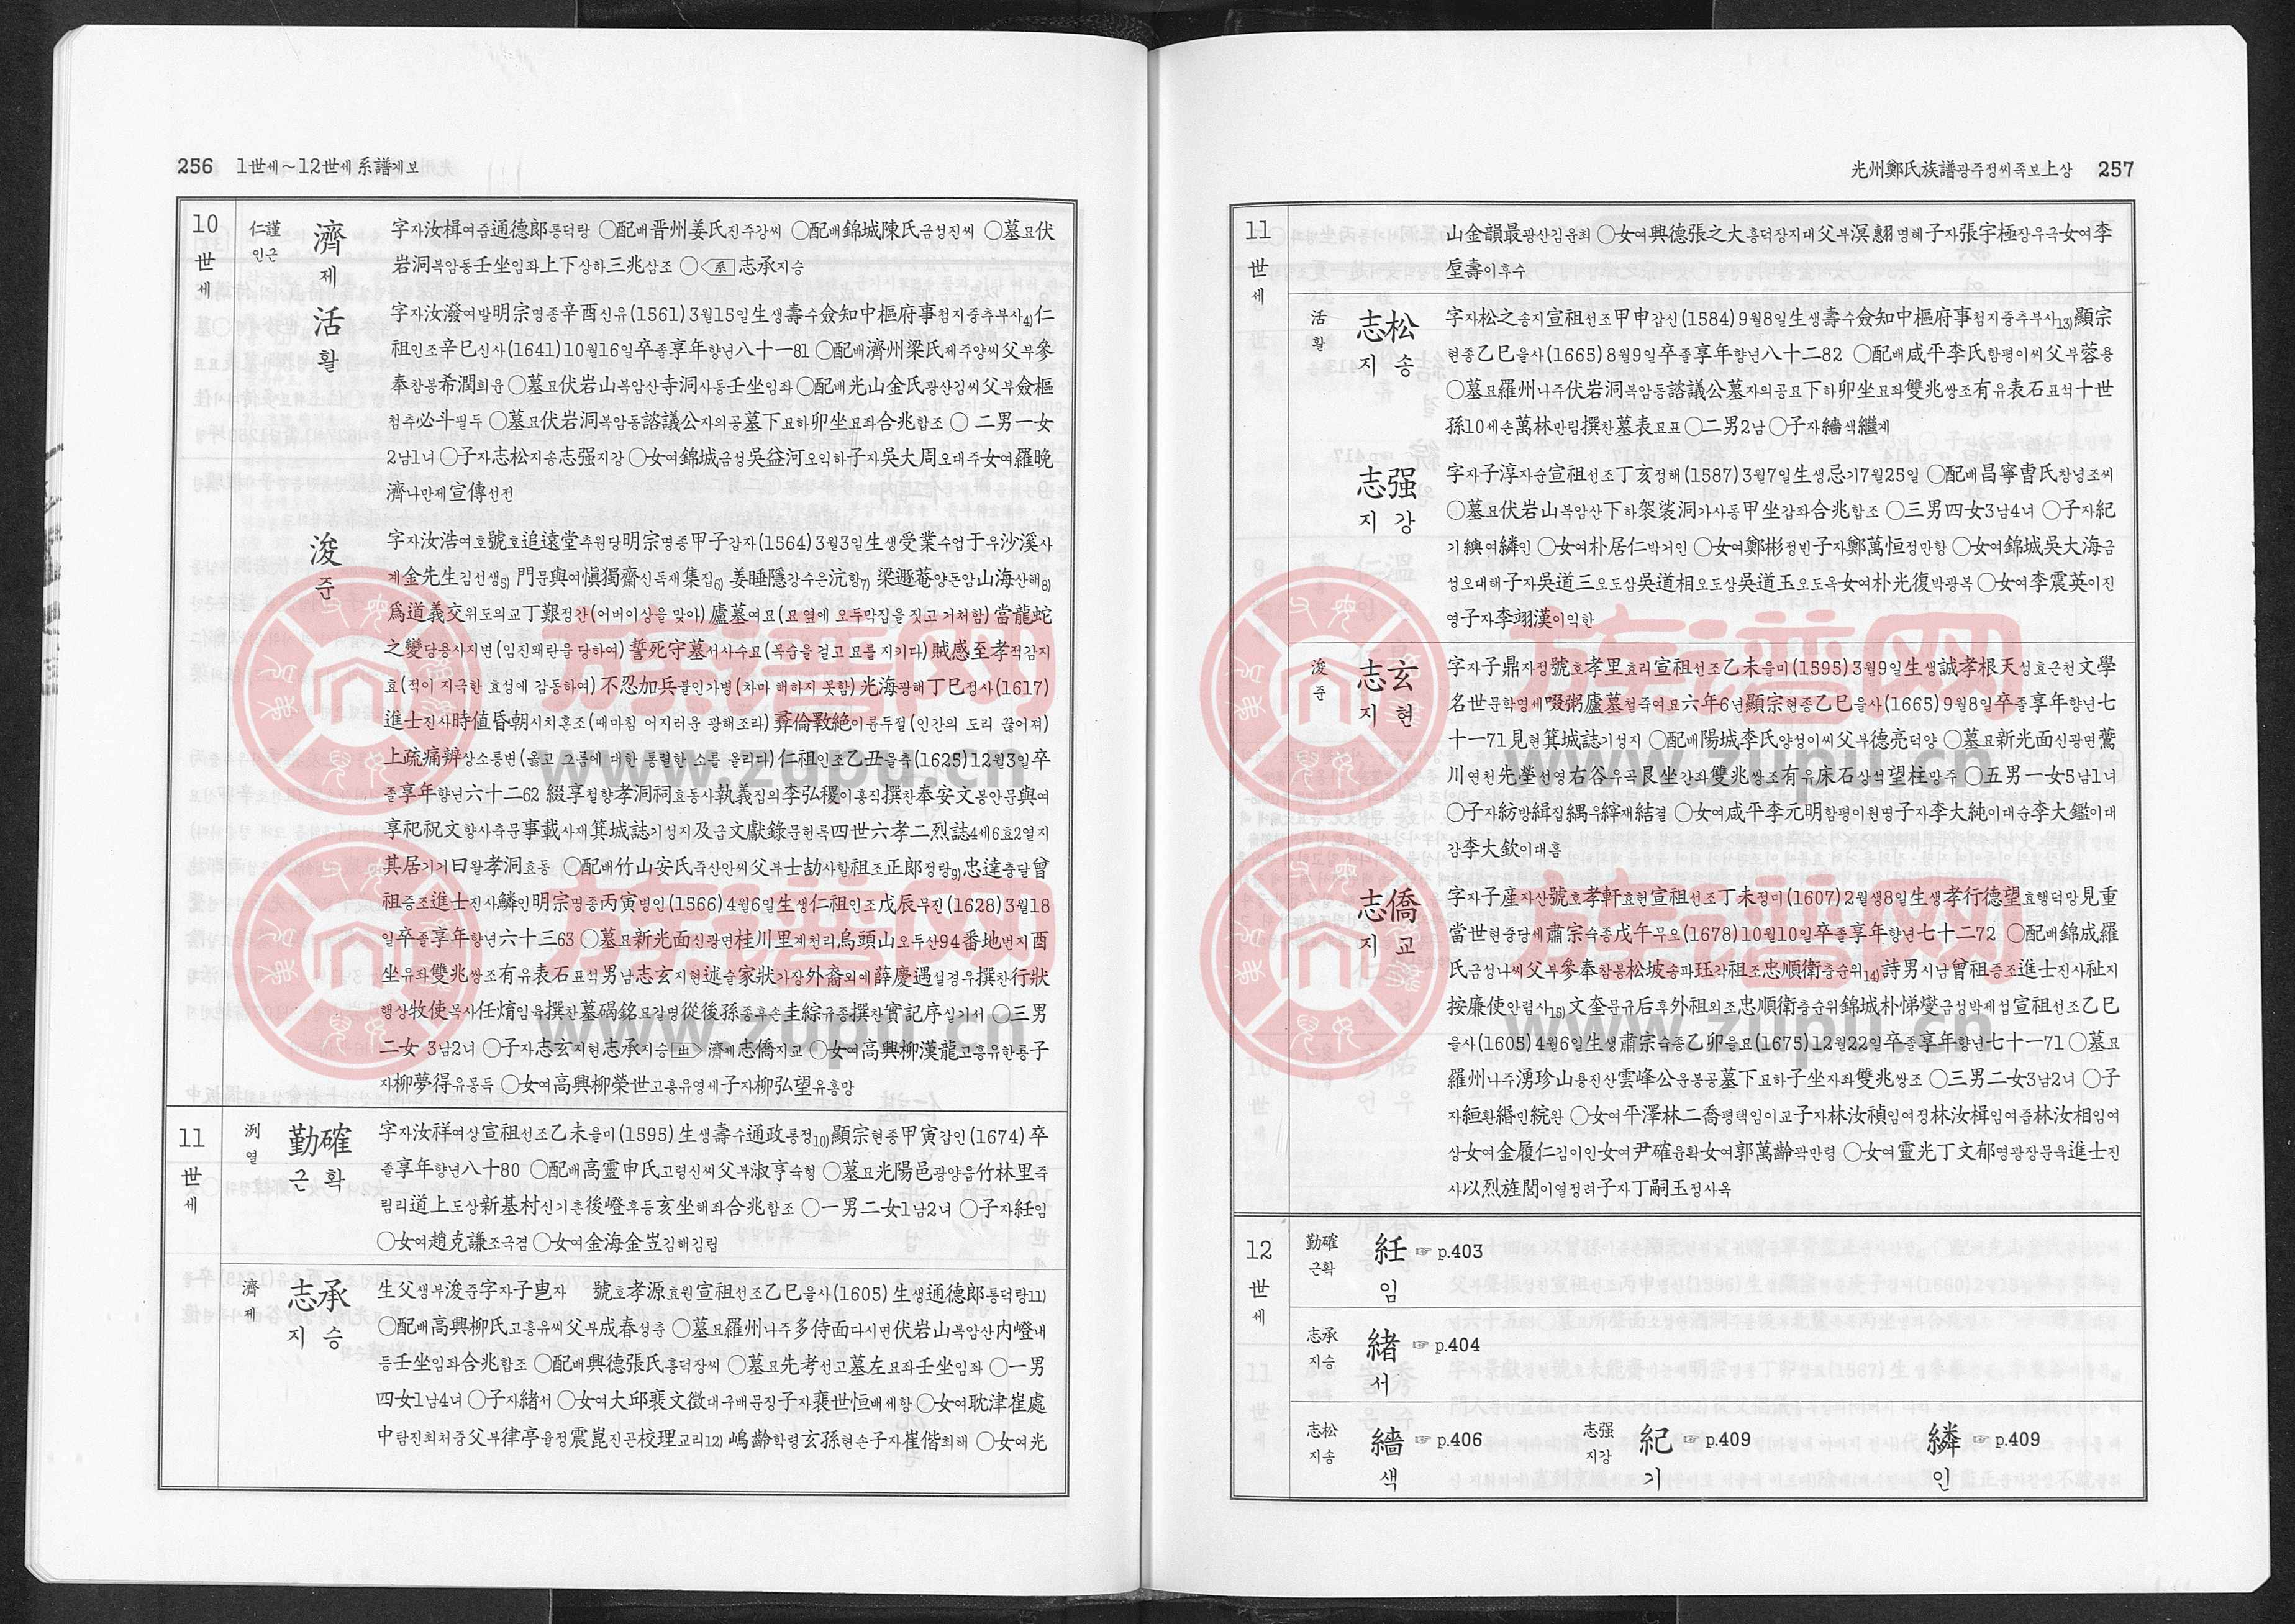 256 1世세～12世세 系譜계보
10
世
세
仁謹
인근
濟
제
字자汝楫여즙通德郞통덕랑 ○配배晋州姜氏진주강씨 ○配배錦城陳氏금성진씨 ○墓묘伏
岩洞복암동壬坐임좌上下상하三兆삼조 ○<系>志承지승
活
활
字자汝潑여발明宗명종辛酉신유(1561)3월15일生생壽수僉知中樞府事첨지중추부사4)仁
祖인조辛巳신사(1641)10월16일卒졸享年향년八十一81 ○配배濟州梁氏제주양씨父부參
奉참봉希潤희윤 ○墓묘伏岩山복암산寺洞사동壬坐임좌 ○配배光山金氏광산김씨父부僉樞
첨추必斗필두 ○墓묘伏岩洞복암동諮議公자의공墓下묘하卯坐묘좌合兆합조 ○ 二男一女
2남1녀 ○子자志松지송志强지강 ○女여錦城금성吳益河오익하子자吳大周오대주女여羅晩
濟나만제宣傳선전
浚
준
字자汝浩여호號호追遠堂추원당明宗명종甲子갑자(1564)3월3일生생受業수업于우沙溪사
계金先生김선생5) 門문與여愼獨齋신독재集집6) 姜睡隱강수은沆항7) 梁遯菴양돈암山海산해8)
爲道義交위도의교丁艱정간(어버이상을 맞아) 廬墓여묘(묘 옆에 오두막집을 짓고 거처함) 當龍蛇
之變당용사지변(임진왜란을 당하여) 誓死守墓서사수묘(목숨을 걸고 묘를 지키다) 賊感至孝적감지
효(적이 지극한 효성에 감동하여) 不忍加兵불인가병(차마 해하지 못함) 光海광해丁巳정사(1617)
進士진사時値昏朝시치혼조(때마침 어지러운 광해조라) 彛倫斁絶이륜두절(인간의 도리 끊어져)
上疏痛辨상소통변(옳고 그름에 대한 통렬한 소를 올리다) 仁祖인조乙丑을축(1625)12월3일卒
졸享年향년六十二62 綴享철향孝洞祠효동사執義집의李弘稷이홍직撰찬奉安文봉안문與여
享祀祝文향사축문事載사재箕城誌기성지及급文獻錄문헌록四世六孝二烈誌4세6효2열지
其居기거曰왈孝洞효동 ○配배竹山安氏죽산안씨父부士劼사할祖조正郞정랑9)忠達충달曾
祖증조進士진사鱗인明宗명종丙寅병인(1566)4월6일生생仁祖인조戊辰무진(1628)3월18
일卒졸享年향년六十三63 ○墓묘新光面신광면桂川里계천리烏頭山오두산94番地번지酉
坐유좌雙兆쌍조有유表石표석男남志玄지현述술家狀가장外裔외예薛慶遇설경우撰찬行狀
행상牧使목사任焴임육撰찬墓碣銘묘갈명從後孫종후손圭綜규종撰찬實記序실기서 ○三男
二女 3남2녀 ○子자志玄지현志承지승<出>濟제志僑지교 ○女여高興柳漢龍고흥유한룡子
자柳夢得유몽득 ○女여高興柳榮世고흥유영세子자柳弘望유홍망
11
世
세
洌
열
勤確
근확
字자汝祥여상宣祖선조乙未을미(1595)生생壽수通政통정10)顯宗현종甲寅갑인(1674)卒
졸享年향년八十80 ○配배高靈申氏고령신씨父부淑亨숙형 ○墓묘光陽邑광양읍竹林里죽
림리道上도상新基村신기촌後嶝후등亥坐해좌合兆합조 ○一男二女1남2녀 ○子자紝임
○女여趙克謙조극겸 ○女여金海金岦김해김립
濟
제
志承
지승
生父생부浚준字자子皀자 號호孝源효원宣祖선조乙巳을사(1605)生생通德郞통덕랑11)
○配배高興柳氏고흥유씨父부成春성춘 ○墓묘羅州나주多侍面다시면伏岩山복암산內嶝내
등壬坐임좌合兆합조 ○配배興德張氏흥덕장씨 ○墓묘先考선고墓左묘좌壬坐임좌 ○一男
四女1남4녀 ○子자緖서 ○女여大邱裵文徵대구배문징子자裵世恒배세항 ○女여耽津崔處
中탐진최처중父부律亭율정震崑진곤校理교리12) 嶋齡학령玄孫현손子자崔偕최해 ○女여光
光州鄭氏族譜광주정씨족보上상 257
11
世
세
山金韻最광산김운최 ○女여興德張之大흥덕장지대父부溟翽명해子자張宇極장우극女여李
垕壽이후수
活
활
志松
지송
字자松之송지宣祖선조甲申갑신(1584)9월8일生생壽수僉知中樞府事첨지중추부사13)顯宗
현종乙巳을사(1665)8월9일卒졸享年향년八十二82 ○配배咸平李氏함평이씨父부蓉용
○墓묘羅州나주伏岩洞복암동諮議公墓자의공묘下하卯坐묘좌雙兆쌍조有유表石표석十世
孫10세손萬林만림撰찬墓表묘표○二男2남 ○子자繬색繼계
志强
지강
字자子淳자순宣祖선조丁亥정해(1587)3월7일生생忌기7월25일 ○配배昌寧曺氏창녕조씨
○墓묘伏岩山복암산下하袈裟洞가사동甲坐갑좌合兆합조 ○三男四女3남4녀 ○子자紀
기繏여繗인 ○女여朴居仁박거인 ○女여鄭彬정빈子자鄭萬恒정만항 ○女여錦城吳大海금
성오대해子자吳道三오도삼吳道相오도상吳道玉오도옥女여朴光復박광복 ○女여李震英이진
영子자李翊漢이익한
浚
준
志玄
지현
字자子鼎자정號호孝里효리宣祖선조乙未을미(1595)3월9일生생誠孝根天성효근천文學
名世문학명세啜粥廬墓철죽여묘六年6년顯宗현종乙巳을사(1665)9월8일卒졸享年향년七
十一71見현箕城誌기성지 ○配배陽城李氏양성이씨父부德亮덕양 ○墓묘新光面신광면鷰
川연천先塋선영右谷우곡艮坐간좌雙兆쌍조有유床石상석望柱망주 ○五男一女5남1녀
○子자紡방緝집緺우縡재結결 ○女여咸平李元明함평이원명子자李大純이대순李大鑑이대
감李大欽이대흠
志僑
지교
字자子産자산號호孝軒효헌宣祖선조丁未정미(1607)2월생8일生생孝行德望효행덕망見重
當世현중당세肅宗숙종戊午무오(1678)10월10일卒졸享年향년七十二72 ○配배錦成羅
氏금성나씨父부參奉참봉松坡송파珏각祖조忠順衛충순위14)詩男시남曾祖증조進士진사祉지
按廉使안렴사15)文奎문규后후外祖외조忠順衛충순위錦城朴悌燮금성박제섭宣祖선조乙巳
을사(1605)4월6일生생肅宗숙종乙卯을묘(1675)12월22일卒졸享年향년七十一71 ○墓묘
羅州나주湧珍山용진산雲峰公운봉공墓下묘하子坐자좌雙兆쌍조 ○三男二女3남2녀 ○子
자絙환緡민綄완 ○女여平澤林二喬평택임이교子자林汝禎임여정林汝楫임여즙林汝相임여
상女여金履仁김이인女여尹確윤확女여郭萬齡곽만령 ○女여靈光丁文郁영광장문욱進士진
사以烈旌閭이열정려子자丁嗣玉정사옥
12
世
세
勤確
근확
紝
임
☞ p.403
志承
지승
緖
서
☞ p.404
志松
지송
繬
색
☞ p.406
志强
지강
紀
기
☞ p.409
繗
인
☞ p.409
族谱网
www.zupu.cn
族谱网
www.zupu.cn
族谱网
www.zupu.cn
族谱网
www.zupu.cn